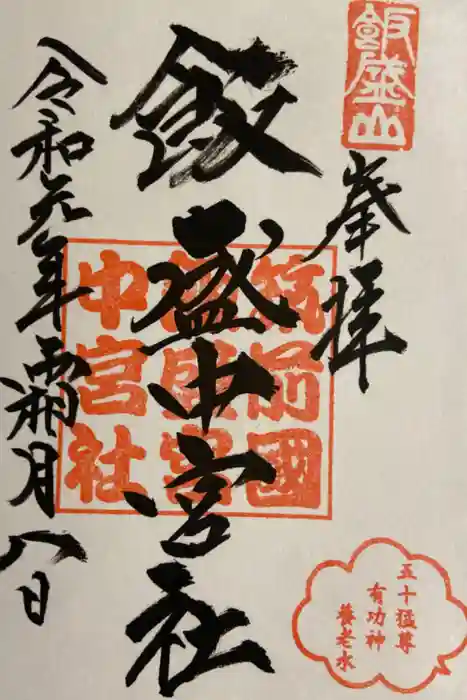 飯盛山
峯拝
飯盛中宮社
筑前國
飯盛宮
中宮社
令和元年霜月八日
五十猛尊
有功神
養老水